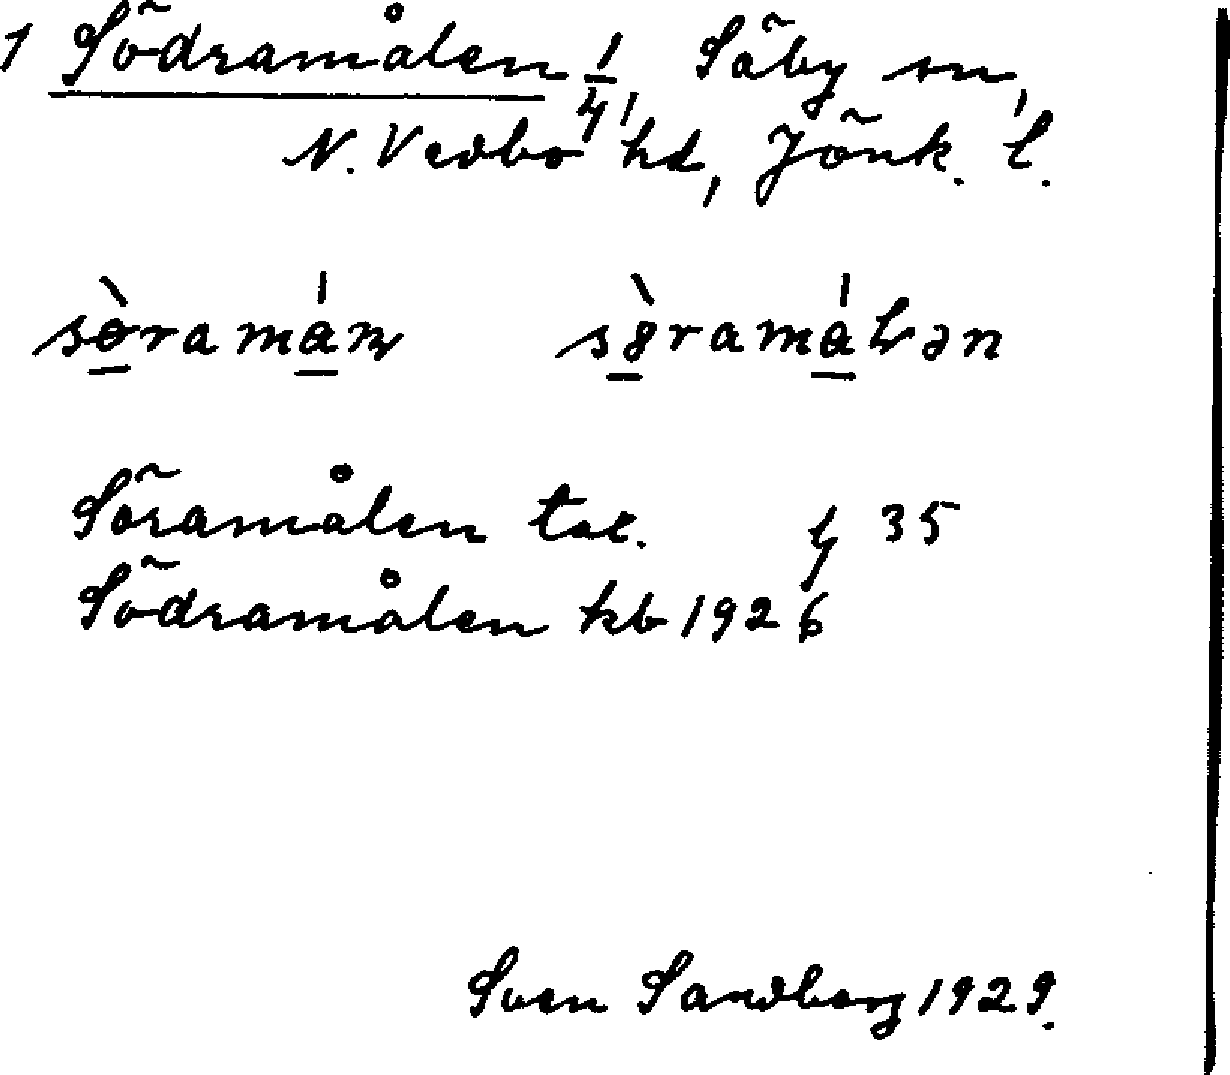 1 Södramålen 1/4, Säby sn,
N. Vedbo hd, Jönk. l.
sö̀ramán sö̀ramáɬən
Söramålen tal. 4/ 35
Södramålen kb 1926
Sven Sandberg 1929.